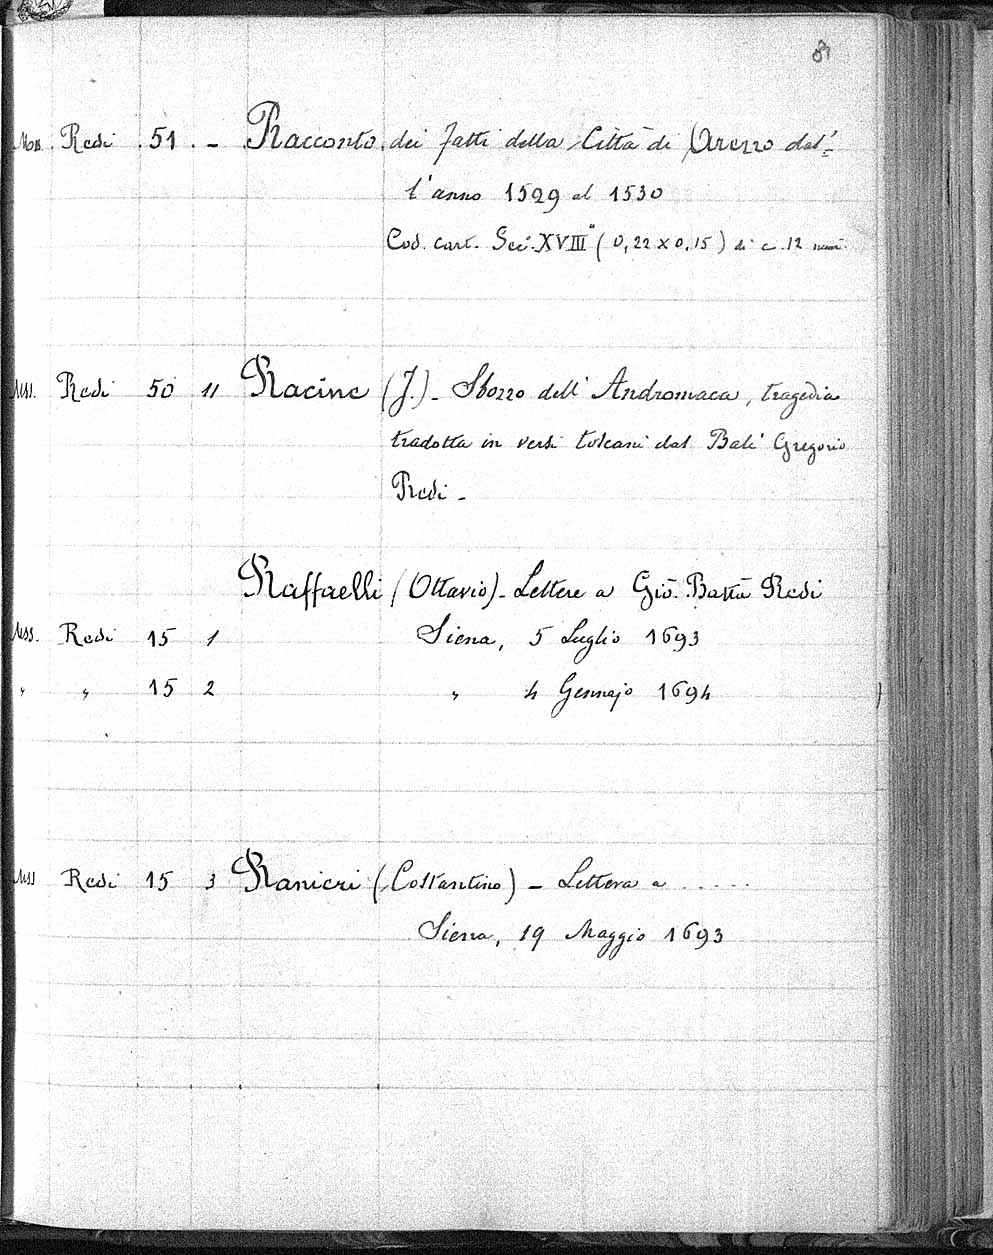 81
Mss. Redi 51. - Racconto dei fatti della Città di Arezzo dal-
l'anno 1529 al 1530
Cod. cart. Sec. XVIII° (0,22 x 0,15) di c. 12 num.
Mss. Redi 50 11 Racine (J.) - Sbozzo dell' Andromaca, tragedia
tradotta in versi toscani dal Balì Gregorio
Redi -
Raffaelli (Ottavio) - Lettere a Gio. Batta Redi
Mss. Redi 15 1 Siena, 5 Luglio 1693
" " 15 2 " 4 Gennajo 1694
Mss Redi 15 3 Ranieri (Costantino) - Lettera a .....
Siena, 19 Maggio 1693